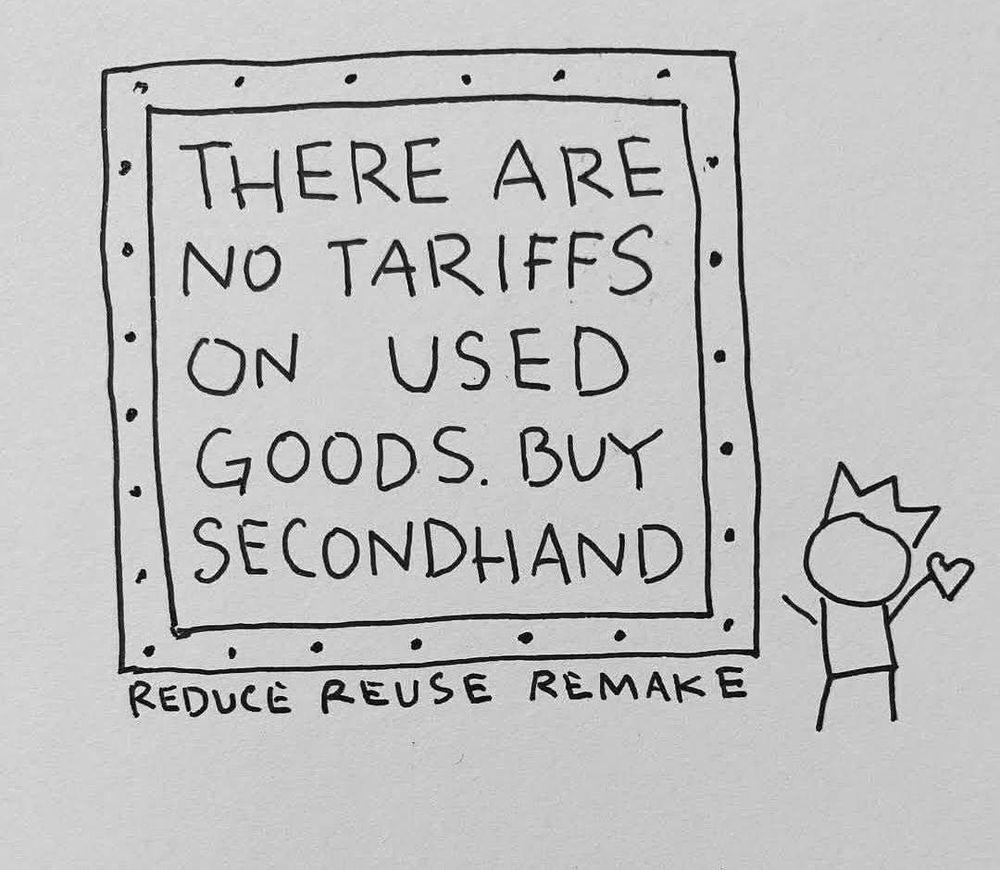 THERE ARE
NO TARIFFS
ON USED
GOODS. BUY
SECONDHAND
REDUCE REUSE REMAKE